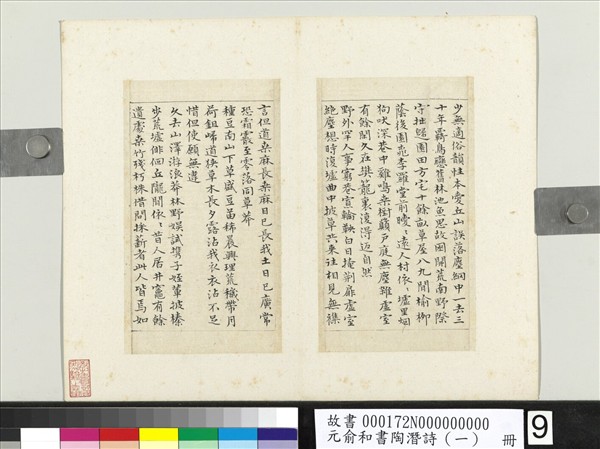 少無適俗韻性本愛丘山誤落塵網中一去三
十年羈鳥戀舊林池魚思故園開荒南野際
守拙歸園田方宅十餘畝草屋八九間榆柳
蔭後園桃李羅堂前曖〻遠人村依〻墟里烟
狗吠深巷中雞鳴桑樹顛戶庭無塵雜虛室
有餘閒久在樊籠裏復得返自然
野外罕人事窮巷寡輪鞅白日掩荊扉虛室
絕塵想時復墟曲中披草共來往相見無雜
言但道桑麻長桑麻日已長我土日已廣常
恐霜霰至零落同草莽
種豆南山下草盛豆苗稀晨興理荒穢帶月
荷鋤歸道狹草木長夕露沾我衣衣沾不足
惜但使願無違
久去山澤游浪莽林野娛試携子姪輩披榛
步荒墟徘徊丘隴間依〻昔人居井竈有餘
遺處桑竹殘朽株借問採薪者此人皆焉如
故書000172N000000000
元俞和書陶潛詩(一) 冊
9